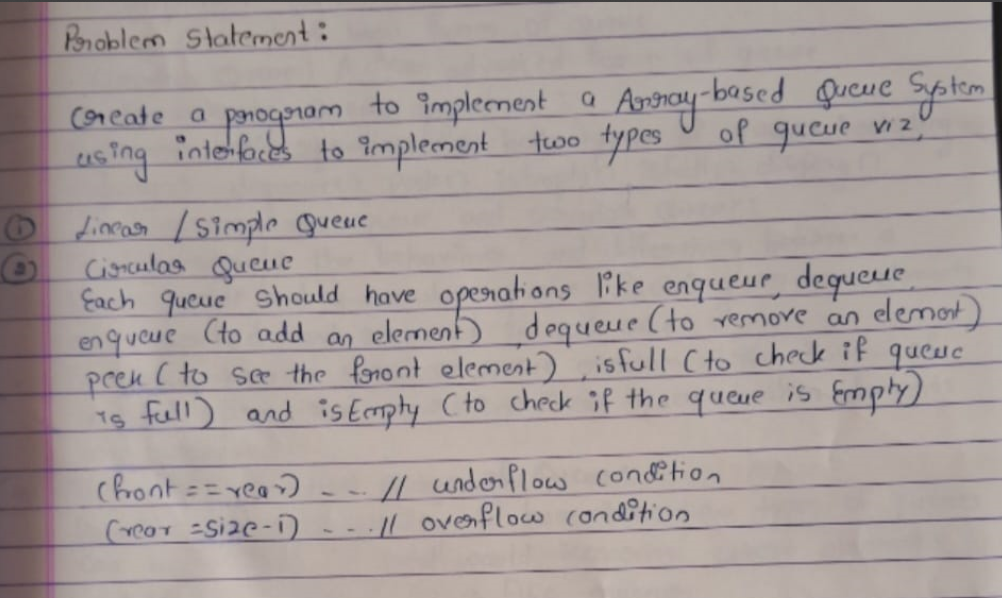 Problem Statement:
Create a program to implement a Array-based Queue System
using interfaces to implement two types of queue viz,
① Linear / Simple Queue
② Circular Queue
Each queue should have operations like enqueue, dequeue,
enqueue (to add an element), dequeue (to remove an element)
peek (to see the front element), isfull (to check if queue
is full) and isEmpty (to check if the queue is Empty)
(front == rear) - - - // underflow condition
(rear = size-1) - - - . // overflow condition